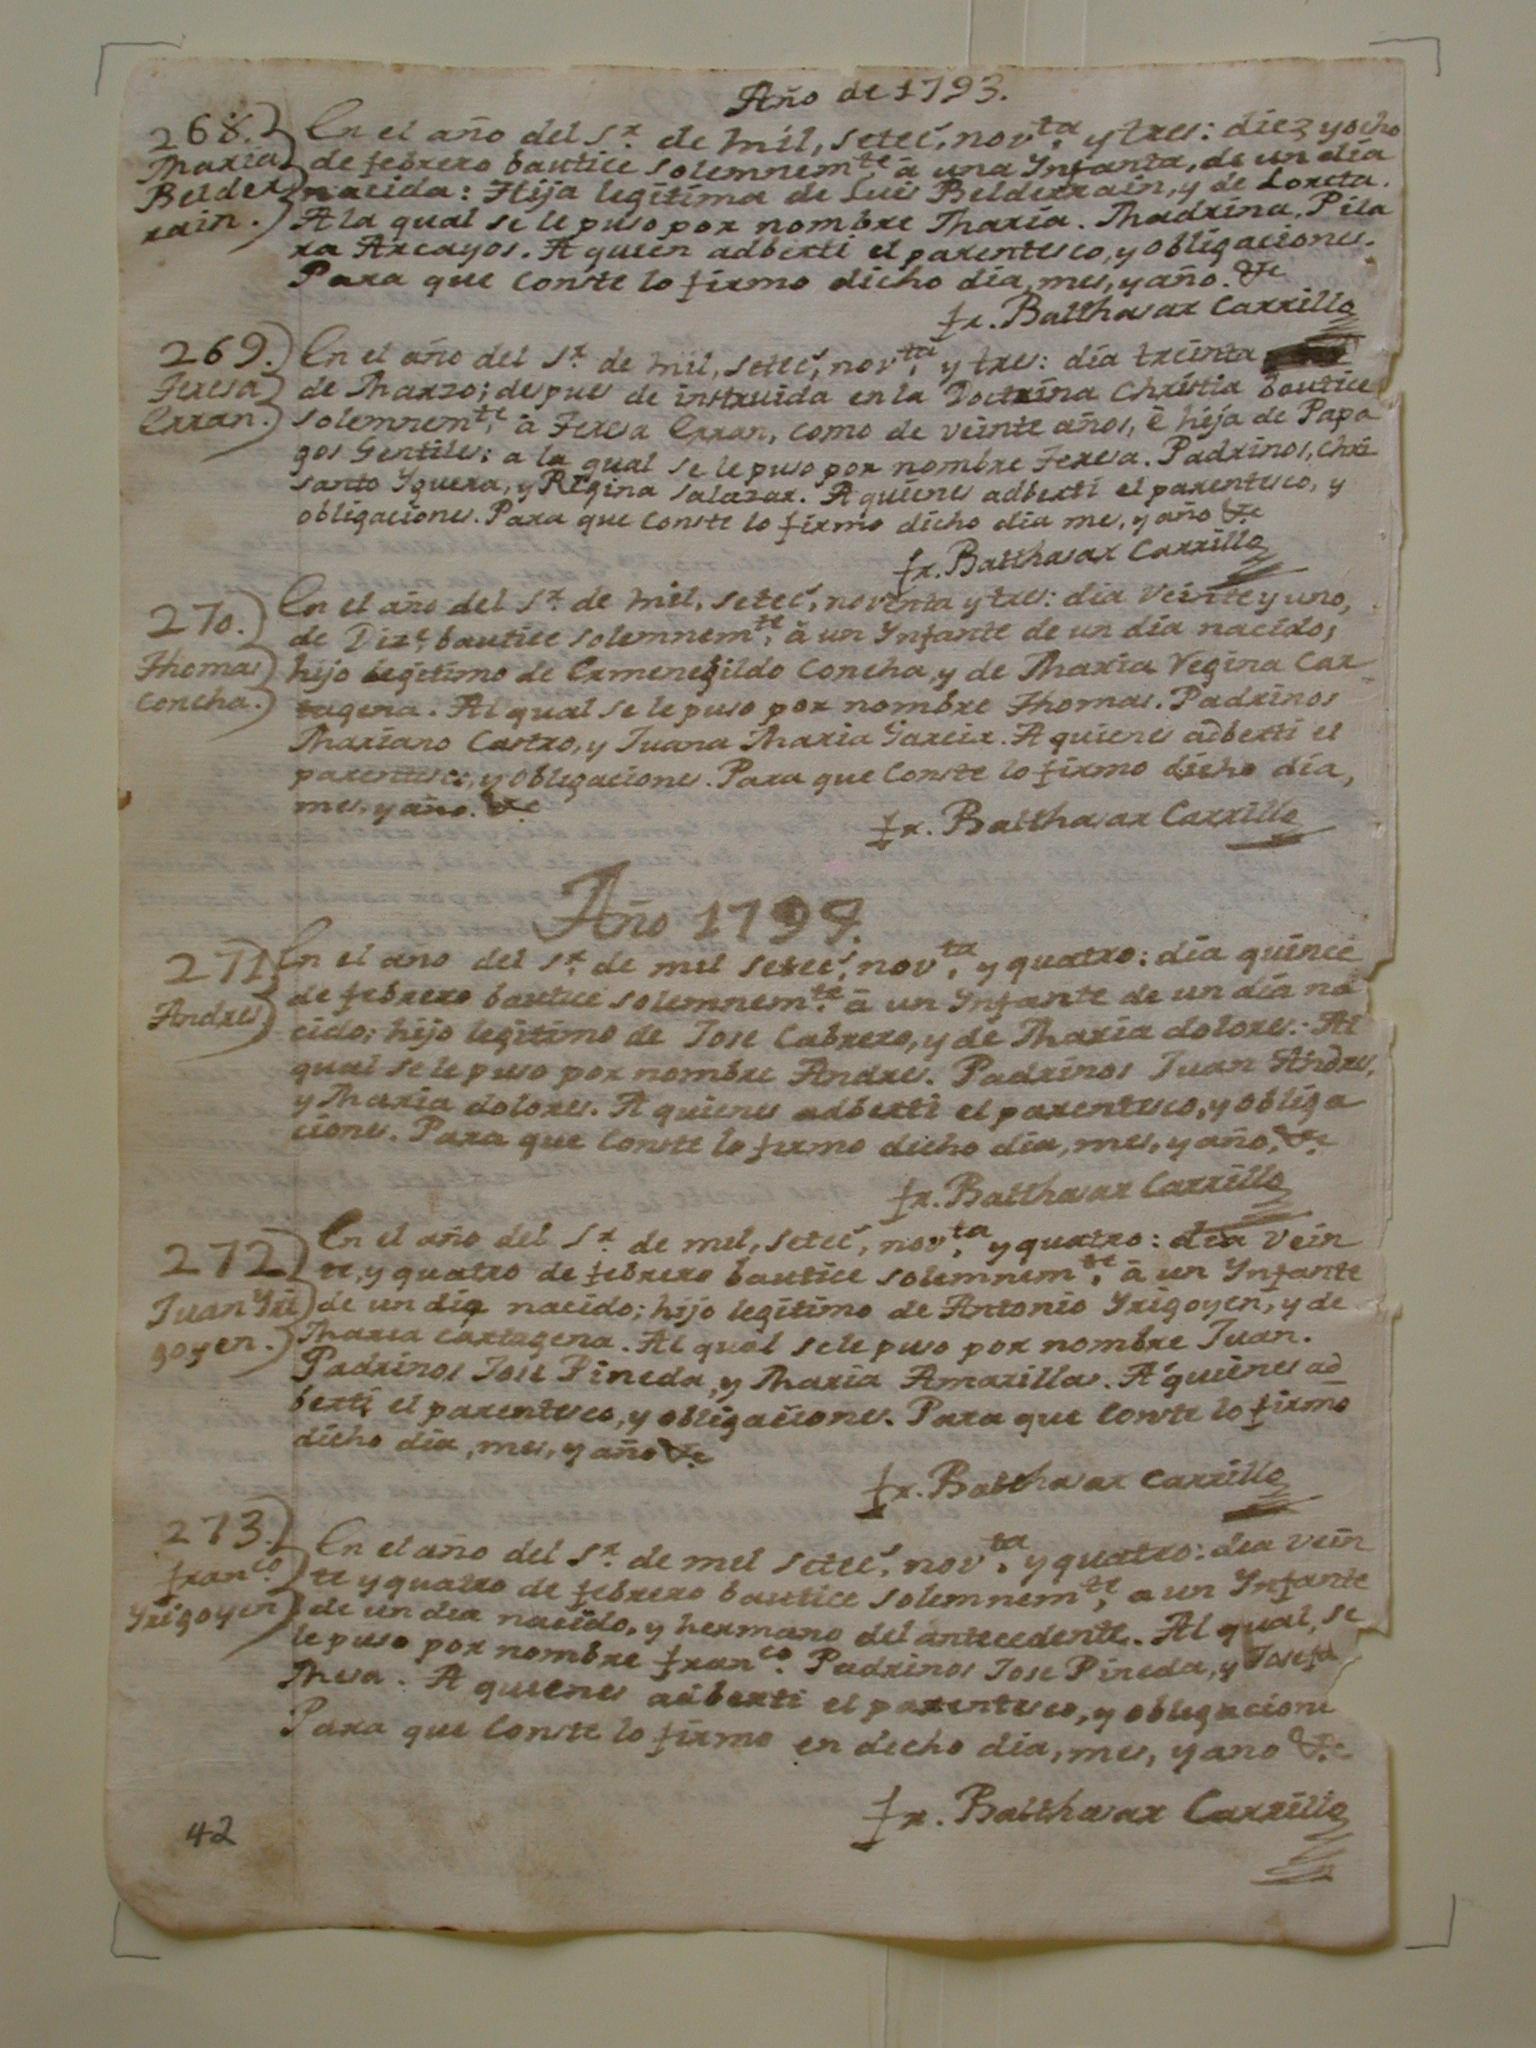 Año de 1793.
268. En el año del Sr. de mil, setecs, novta, y tres: diez y ocho
Maria de febrero bautice solemnemte. à una Ynfanta, de un dia
Belder nacida: Hija legitima de Luis Belderrain, y de Loreta.
rain. A la qual se le puso por nombre Maria. Madrina, Pila
ra Arcayos. A quien adberti el parentesco, y obligaciones.
Para que conste lo firmo dicho dia, mes, y año. &c
fr. Balthasar Carrillo
269. En el año del Sr. de mil, setecs, novta, y tres: dia treinta
Teresa de Marzo; despues de instruida en la Doctrina Christia bautice
Erran. solemnemte, à Teresa Erran, como de veinte años, è hija de Papa
gos Gentiles: a la qual se le puso por nombre Teresa. Padrinos, Chri
santo Yguera, y Regina Salazar. A quienes adberti el parentesco, y
obligaciones. Para que conste lo firmo dicho dia mes, y año &c
fr. Balthasar Carrillo
270. En el año del Sr. de mil, setecs, noventa y tres: dia veinte y uno,
de Dize bautice solemnemte, à un Ynfante de un dia nacido;
Thomas hijo legitimo de Ermenegildo Concha, y de Maria Vegina Car
Concha. tagena. Al qual se le puso por nombre Thomas. Padrinos
Mariano Castro, y Juana Maria Garcia. A quienes adberti el
parentesco, y obligaciones. Para que conste lo firmo dicho dia,
mes, y año. &c
fr. Balthasar Carrillo
Año 1794.
271 En el año del Sr. de mil setecs, novta, y quatro: dia quince
Andres de febrero bautice solemnemte. à un Ynfante de un dia na
cido; hijo legitimo de Jose Cabrero, y de Maria dolores. Al
qual se le puso por nombre Andres. Padrinos Juan Andres,
y Maria dolores. A quienes adberti el parentesco, y obliga
ciones. Para que conste lo firmo dicho dia, mes, y año, &c
fr. Balthasar Carrillo
272 En el año del Sr. de mil, setecs, novta, y quatro: dia vein
te, y quatro de febrero bautice solemnemte, à un Ynfante
Juan Yri de un dia nacido; hijo legitimo de Antonio Yrigoyen, y de
goyen. Maria Cartagena. Al qual se le puso por nombre Juan.
Padrinos Jose Pineda, y Maria Amarillas. A quienes ad
berti el parentesco, y obligaciones. Para que conste lo firmo
dicho dia, mes, y año &c
fr. Balthasar Carrillo
273. En el año del Sr. de mil setecs, novta, y quatro: dia vein
franco. te y quatro de febrero bautice solemnemte, a un Ynfante
Yrigoyen de un dia nacido, y hermano del antecedente. Al qual, se
le puso por nombre franco. Padrinos Jose Pineda, y Josefa
Mesa. A quienes adberti el parentesco, y obligacione
Para que conste lo firmo en dicho dia, mes, y ano &c
fr. Balthasar Carrillo
42